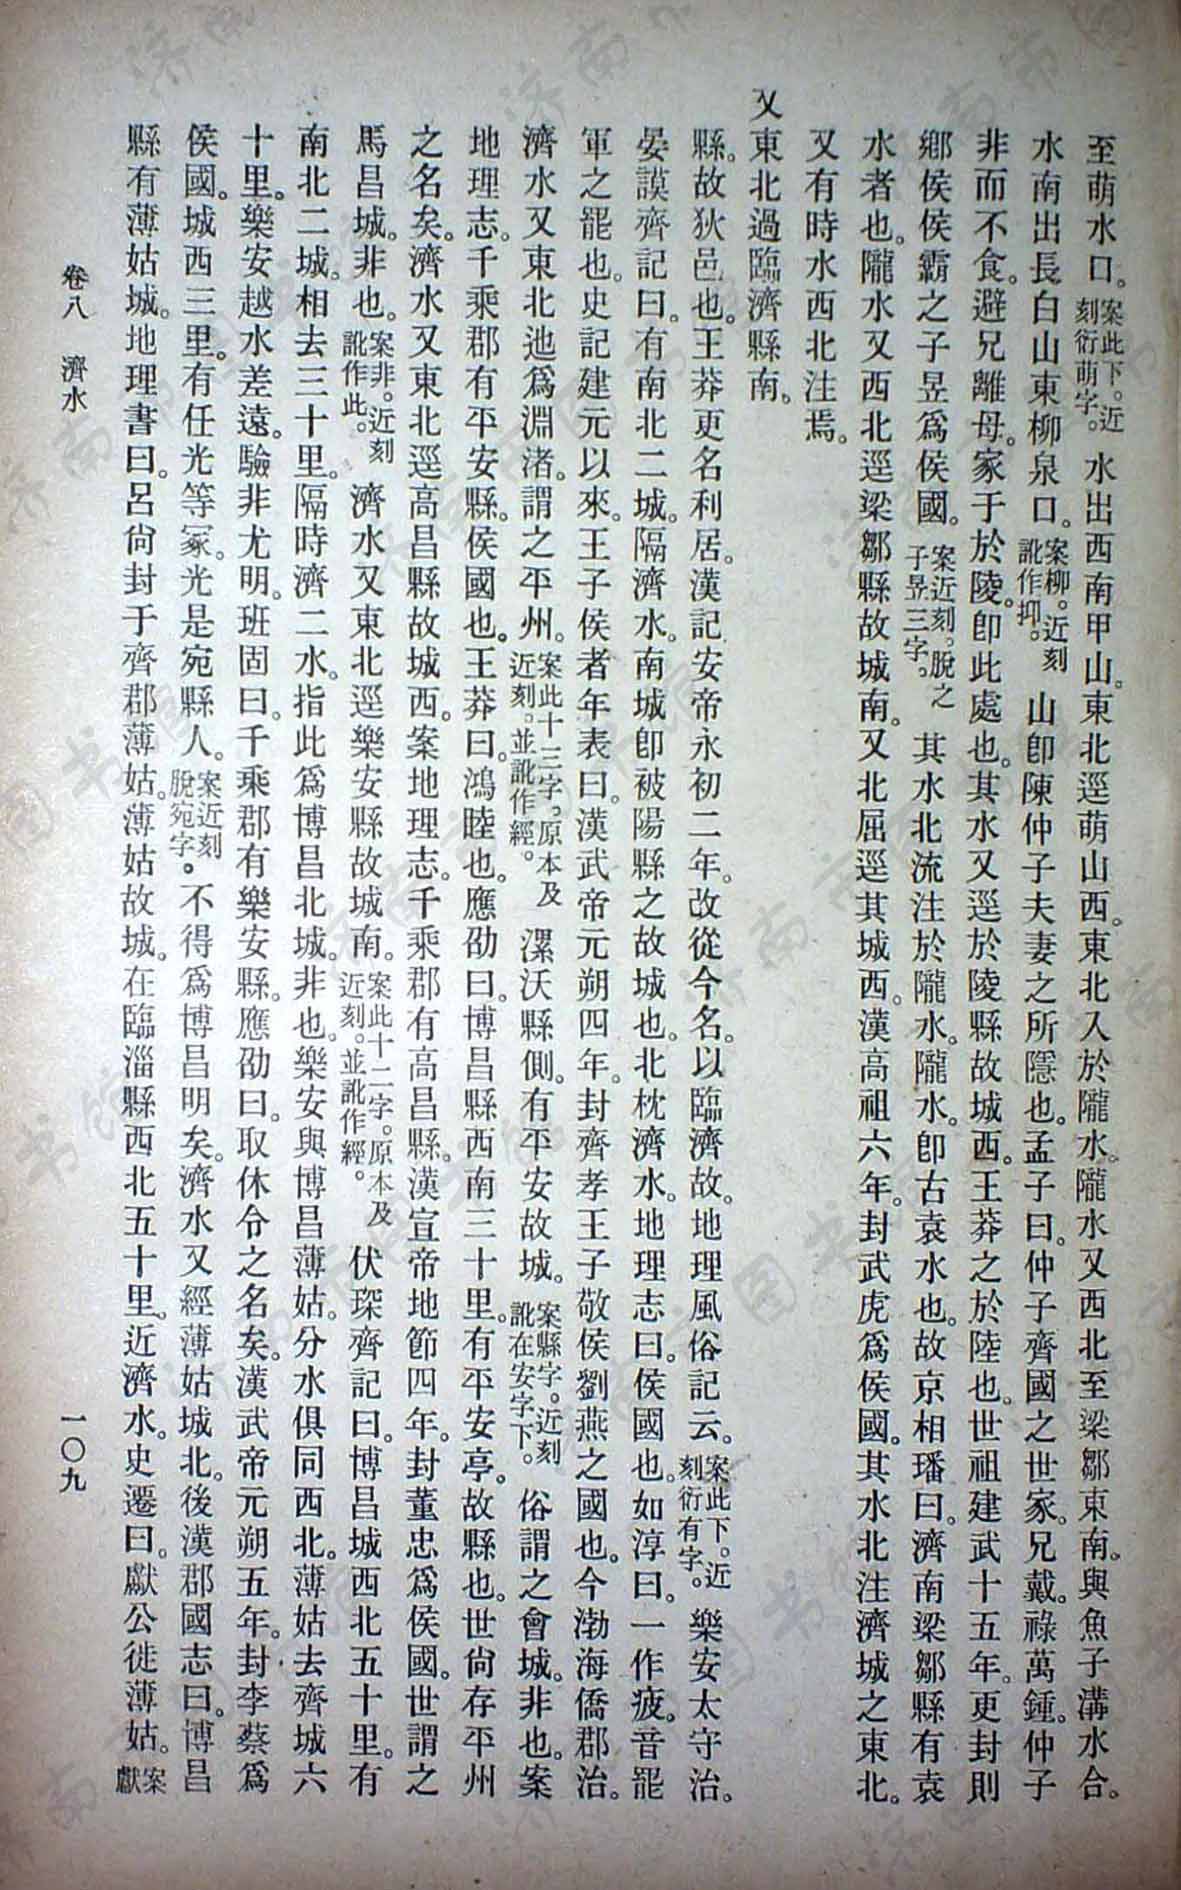 至萌水口。案此下。近刻衍萌字。水出西南甲山。東北逕萌山西。東北入於隴水。隴水又西北至梁鄒東南。與魚子溝水合。
水南出長白山東柳泉口。案柳。近刻訛作抑。山卽陳仲子夫妻之所隱也。孟子曰。仲子齊國之世家。兄戴。祿萬鍾。仲子
非而不食。避兄離母。家于於陵。卽此處也。其水又逕於陵縣故城西。王莽之於陸也。世祖建武十五年。更封則
鄉侯侯霸之子昱爲侯國。案近刻。脫之子昱三字。其水北流注於隴水。隴水。卽古袁水也。故京相璠曰。濟南梁鄒縣有袁
水者也。隴水又西北逕梁鄒縣故城南。又北屈逕其城西。漢高祖六年。封武虎爲侯國。其水北注濟城之東北。
又有時水西北注焉。
又東北過臨濟縣南。
縣。故狄邑也。王莽更名利居。漢記安帝永初二年。改從今名。以臨濟故。地理風俗記云。案此下。近刻衍有字。樂安太守治。
晏謨齊記曰。有南北二城。隔濟水。南城卽被陽縣之故城也。北枕濟水。地理志曰。侯國也。如淳曰。一作疲。音罷
軍之罷也。史記建元以來。王子侯者年表曰。漢武帝元朔四年。封齊孝王子敬侯劉燕之國也。今渤海僑郡治。
濟水又東北迆爲淵渚。謂之平州。案此十三字。原本及近刻。並訛作經。漯沃縣側。有平安故城。案縣字。近刻訛在安字下。俗謂之會城。非也。案
地理志。千乘郡有平安縣。侯國也。王莽曰。鴻睦也。應劭曰。博昌縣西南三十里。有平安亭。故縣也。世尙存平州
之名矣。濟水又東北逕高昌縣故城西。案地理志。千乘郡有高昌縣。漢宣帝地節四年。封董忠爲侯國。世謂之
馬昌城。非也。案非。近刻訛作此。濟水又東北逕樂安縣故城南。案此十二字。原本及近刻。並訛作經。伏琛齊記曰。博昌城西北五十里。有
南北二城。相去三十里。隔時濟二水。指此爲博昌北城。非也。樂安與博昌薄姑。分水俱同西北。薄姑去齊城六
十里。樂安越水差遠。驗非尤明。班固曰。千乘郡有樂安縣。應劭曰。取休令之名矣。漢武帝元朔五年。封李蔡爲
侯國。城西三里。有任光等冢。光是宛縣人。案近刻脫宛字。不得爲博昌明矣。濟水又經薄姑城北。後漢郡國志曰。博昌
縣有薄姑城。地理書曰。呂尙封于齊郡薄姑。薄姑故城。在臨淄縣西北五十里。近濟水。史遷曰。獻公徙薄姑。案獻
卷八 濟水 一〇九